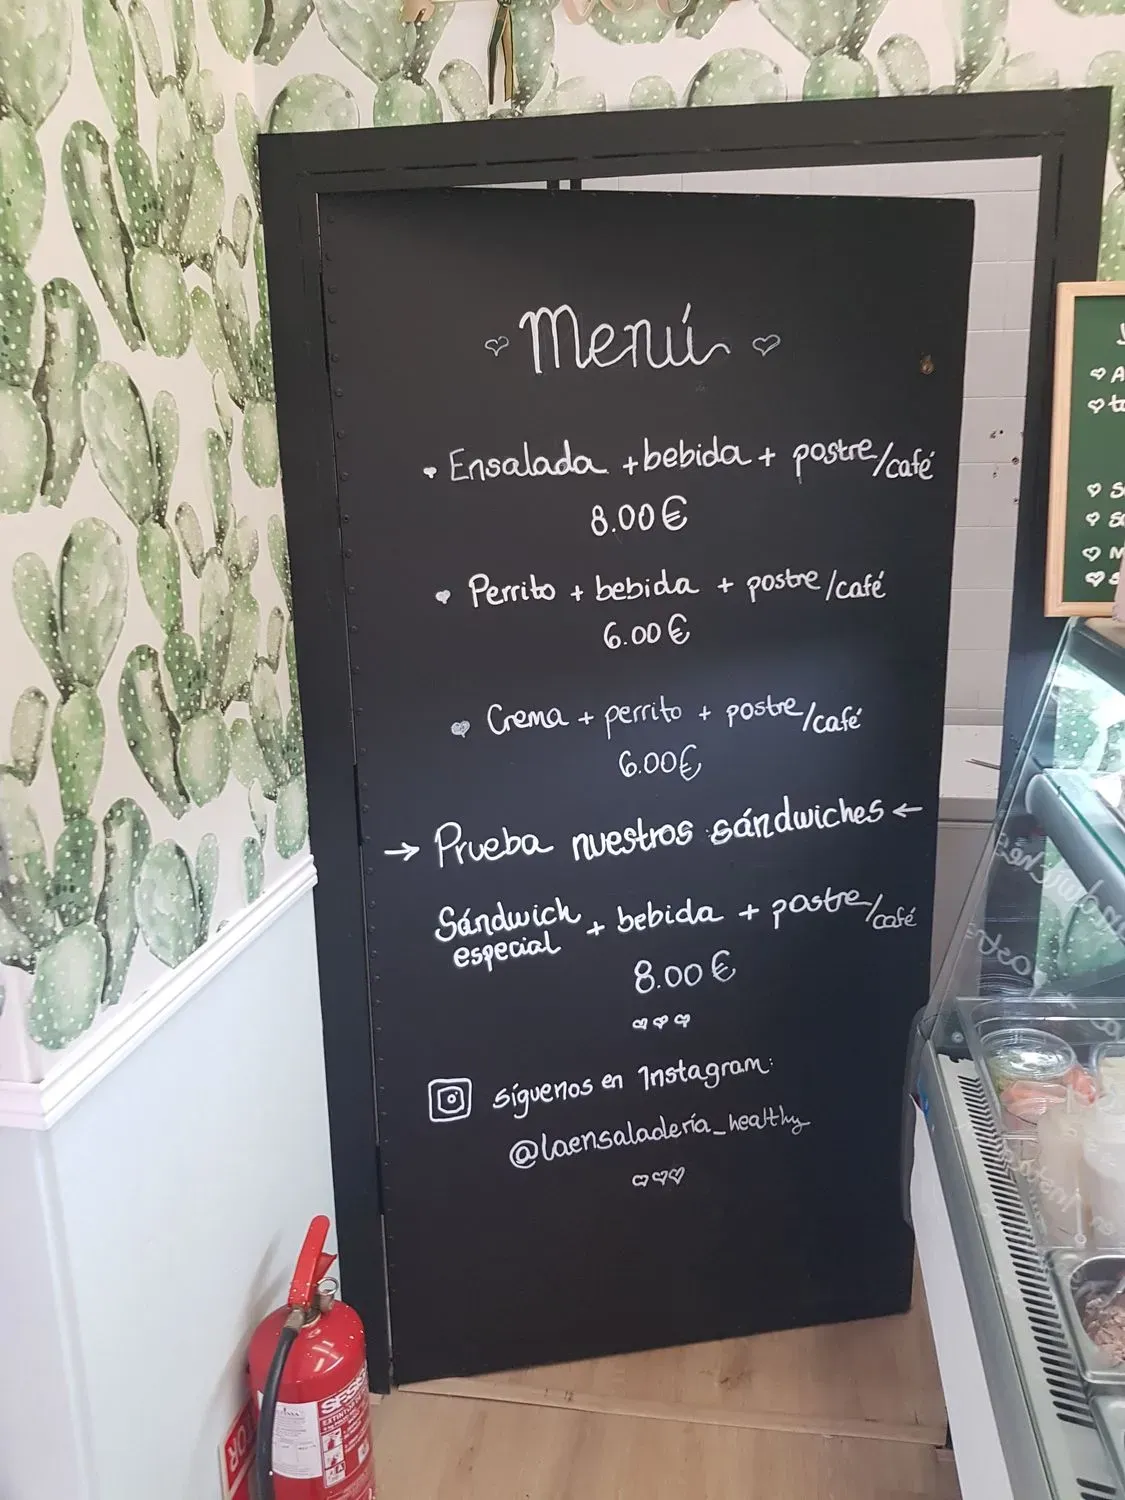 Menú
Ensalada + bebida + postre/café
8.00€
Perrito + bebida + postre/café
6.00€
Crema + perrito + postre/café
6.00€
→ Prueba nuestros sándwiches ←
Sándwich especial + bebida + postre/café
8.00€
síguenos en Instagram:
@laensaladería_healthy
EXTINTOR